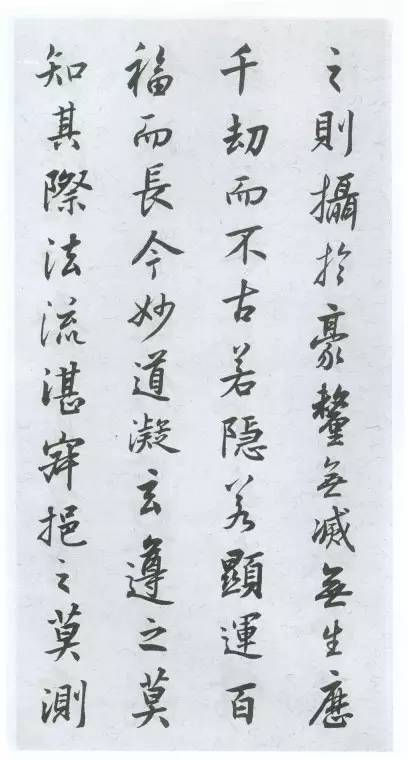 之則攝於豪釐無滅無生歷
千劫而不古若隱若顯運百
福而長今妙道凝玄遵之莫
知其際法流湛寂挹之莫測